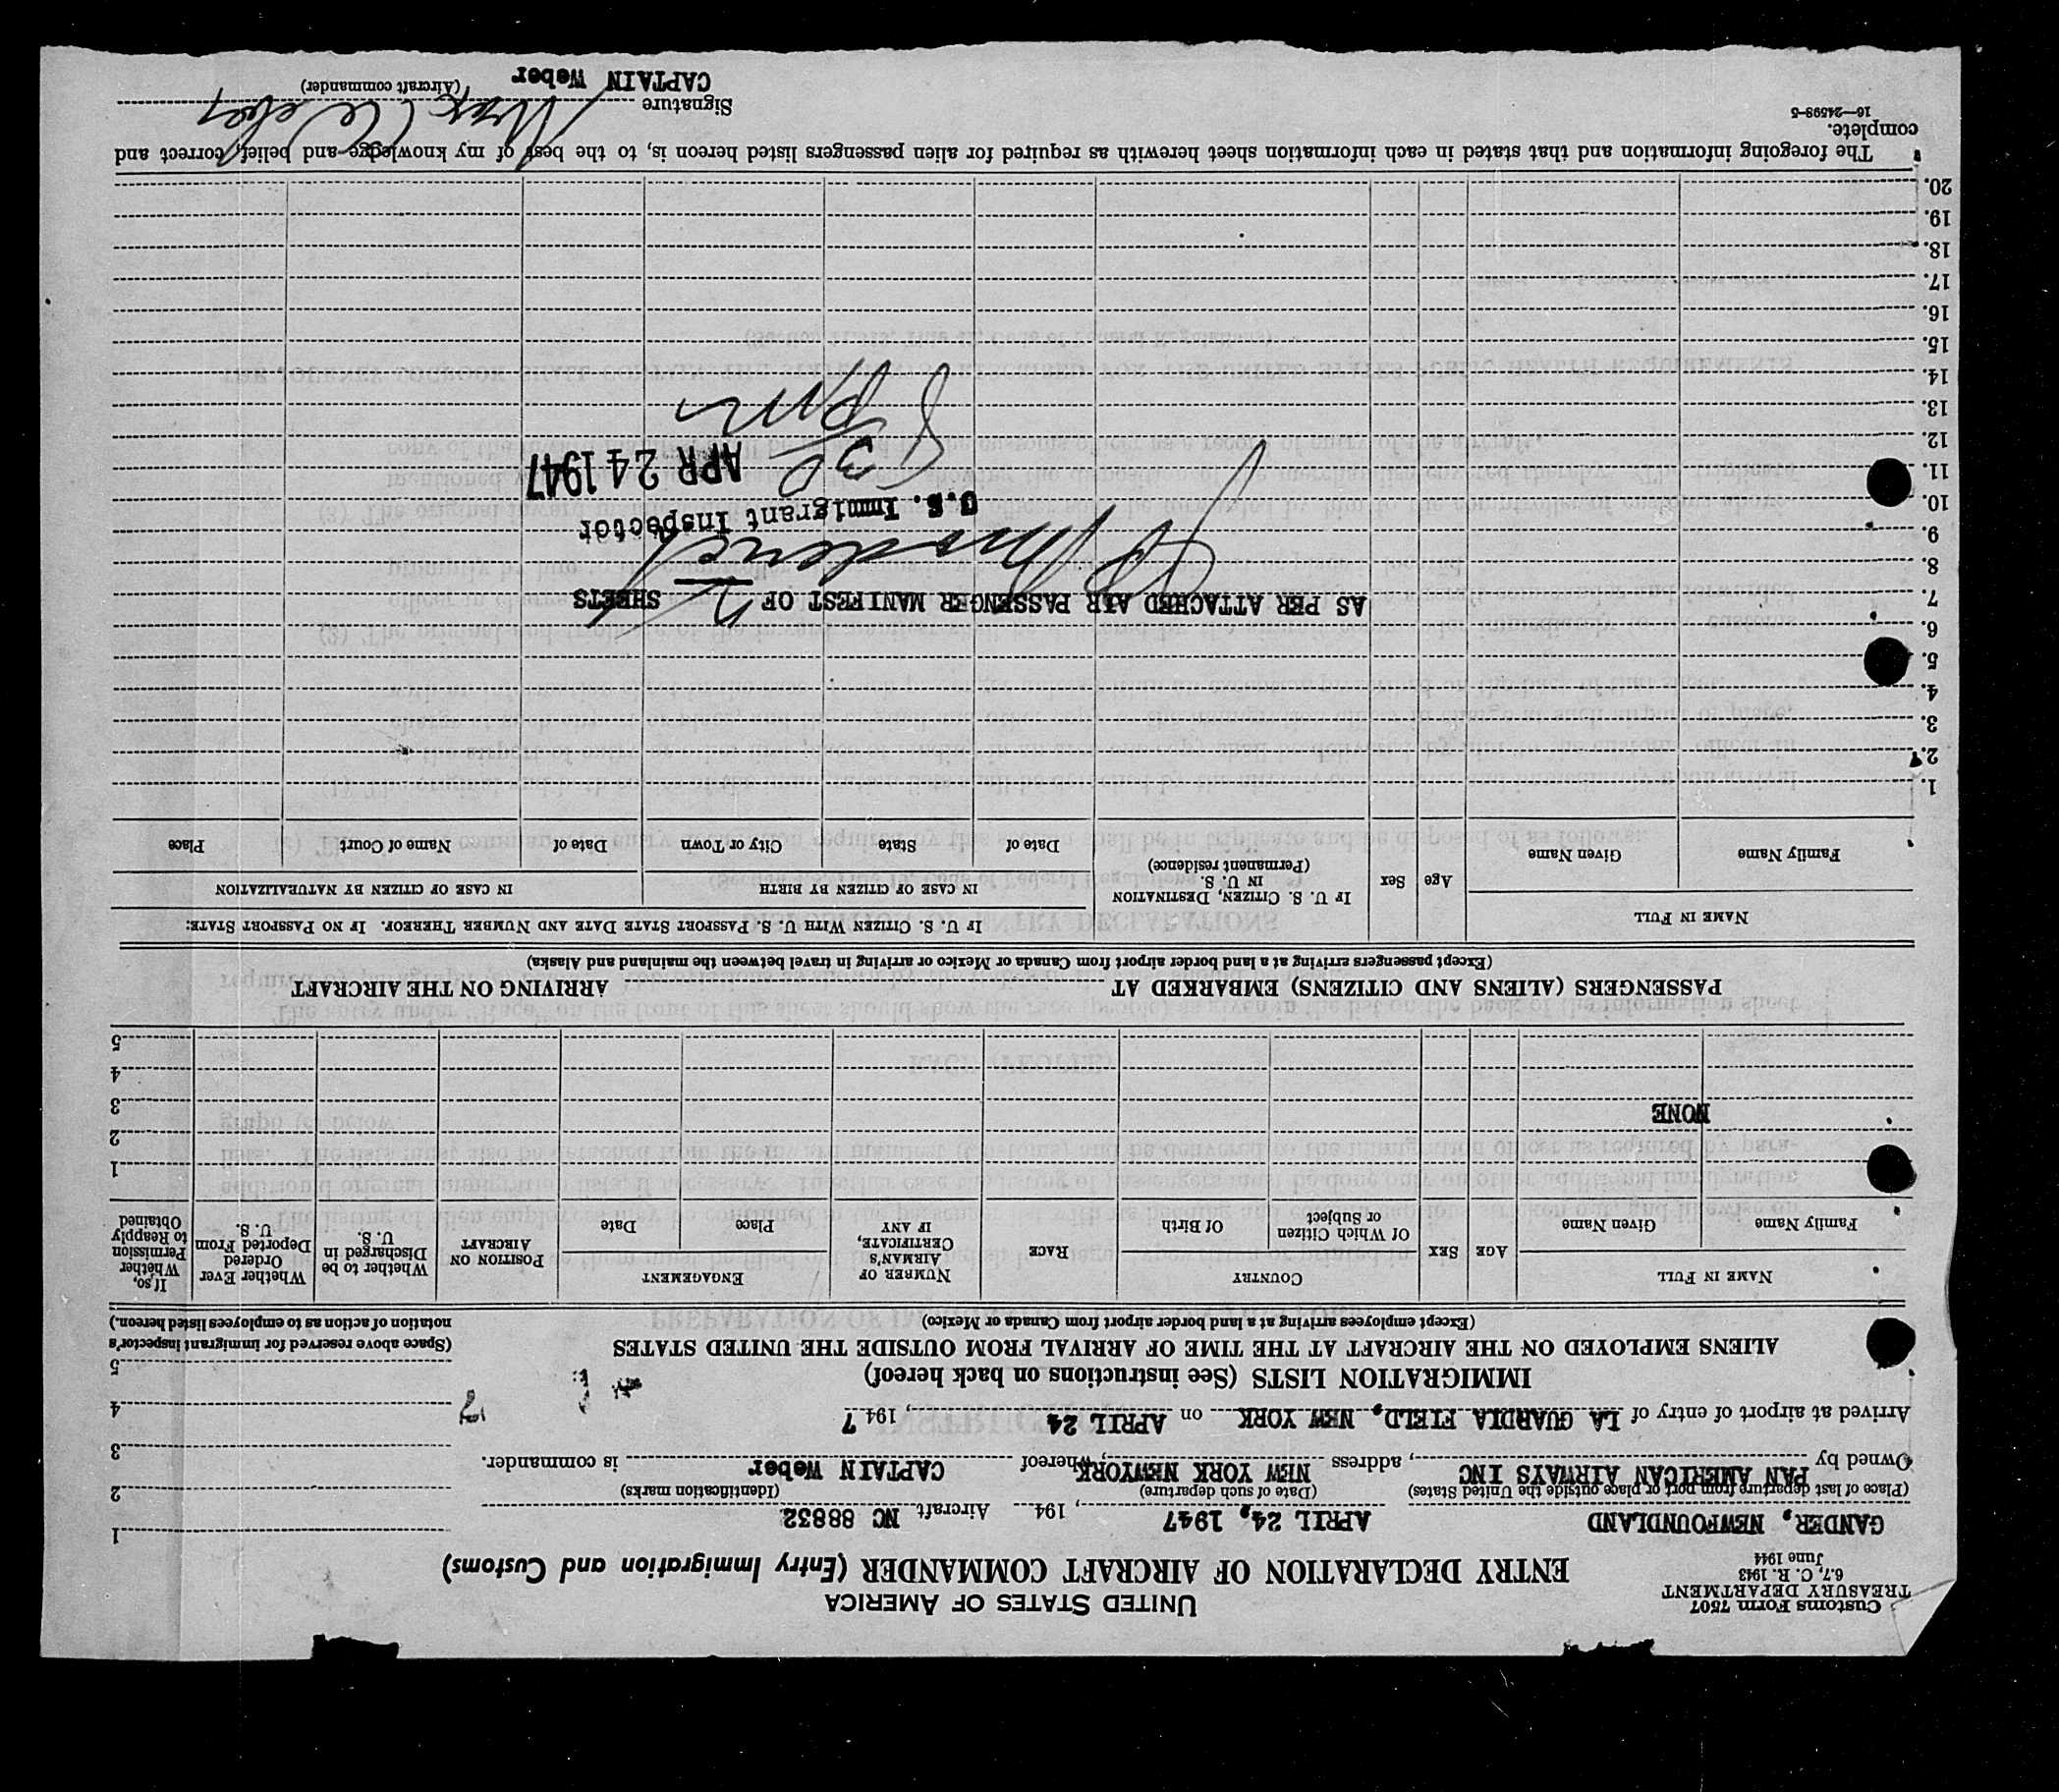 Customs Form 7507
TREASURY DEPARTMENT
6.7, C. R. 1943
June 1944
UNITED STATES OF AMERICA
ENTRY DECLARATION OF AIRCRAFT COMMANDER (Entry Immigration and Customs)
GANDER, NEWFOUNDLAND APRIL 24, 1947 , 194 Aircraft NC 88832
(Place of last departure from port or place outside the United States) (Date of such departure) (Identification marks)
Owned by PAN AMERICAN AIRWAYS INC , address NEW YORK NEWYORK, whereof CAPTAIN Weber is commander.
Arrived at airport of entry of LA GUARDIA FIELD, NEW YORK on APRIL 24 , 194 7
1
2
3
4
5
(Space above reserved for immigrant inspector's notation of action as to employees listed hereon.)
IMMIGRATION LISTS (See instructions on back hereof)
ALIENS EMPLOYED ON THE AIRCRAFT AT THE TIME OF ARRIVAL FROM OUTSIDE THE UNITED STATES
(Except employees arriving at a land border airport from Canada or Mexico)
NAME IN FULL AGE SEX COUNTRY RACE NUMBER OF AIRMAN'S CERTIFICATE, IF ANY ENGAGEMENT POSITION ON AIRCRAFT Whether to be Discharged in U. S. Whether Ever Ordered Deported From U. S. If so, Whether Permission to Reapply Obtained
Family Name Given Name Of Which Citizen or Subject Of Birth Place Date
1
2
NONE 3
4
5
PASSENGERS (ALIENS AND CITIZENS) EMBARKED AT ARRIVING ON THE AIRCRAFT
(Except passengers arriving at a land border airport from Canada or Mexico or arriving in travel between the mainland and Alaska)
NAME IN FULL Age Sex IF U. S. CITIZEN, DESTINATION IN U. S. (Permanent residence) IF U. S. CITIZEN WITH U. S. PASSPORT STATE DATE AND NUMBER THEREOF. IF NO PASSPORT STATE:
IN CASE OF CITIZEN BY BIRTH IN CASE OF CITIZEN BY NATURALIZATION
Family Name Given Name Date of State City or Town Date of Name of Court Place
1.
2.
3.
4.
5.
6.
7. AS PER ATTACHED AIR PASSENGER MANIFEST OF 2 SHEETS
8.
9.
U.S. Immigrant Inspector
10.
11. APR 24 1947
8 30 PM
12.
13.
14.
15.
16.
17.
18.
19.
20.
The foregoing information and that stated in each information sheet herewith as required for alien passengers listed hereon is, to the best of my knowledge and belief, correct and
complete.
16—24598-5
Signature Max Weber
(Aircraft commander)
CAPTAIN Weber